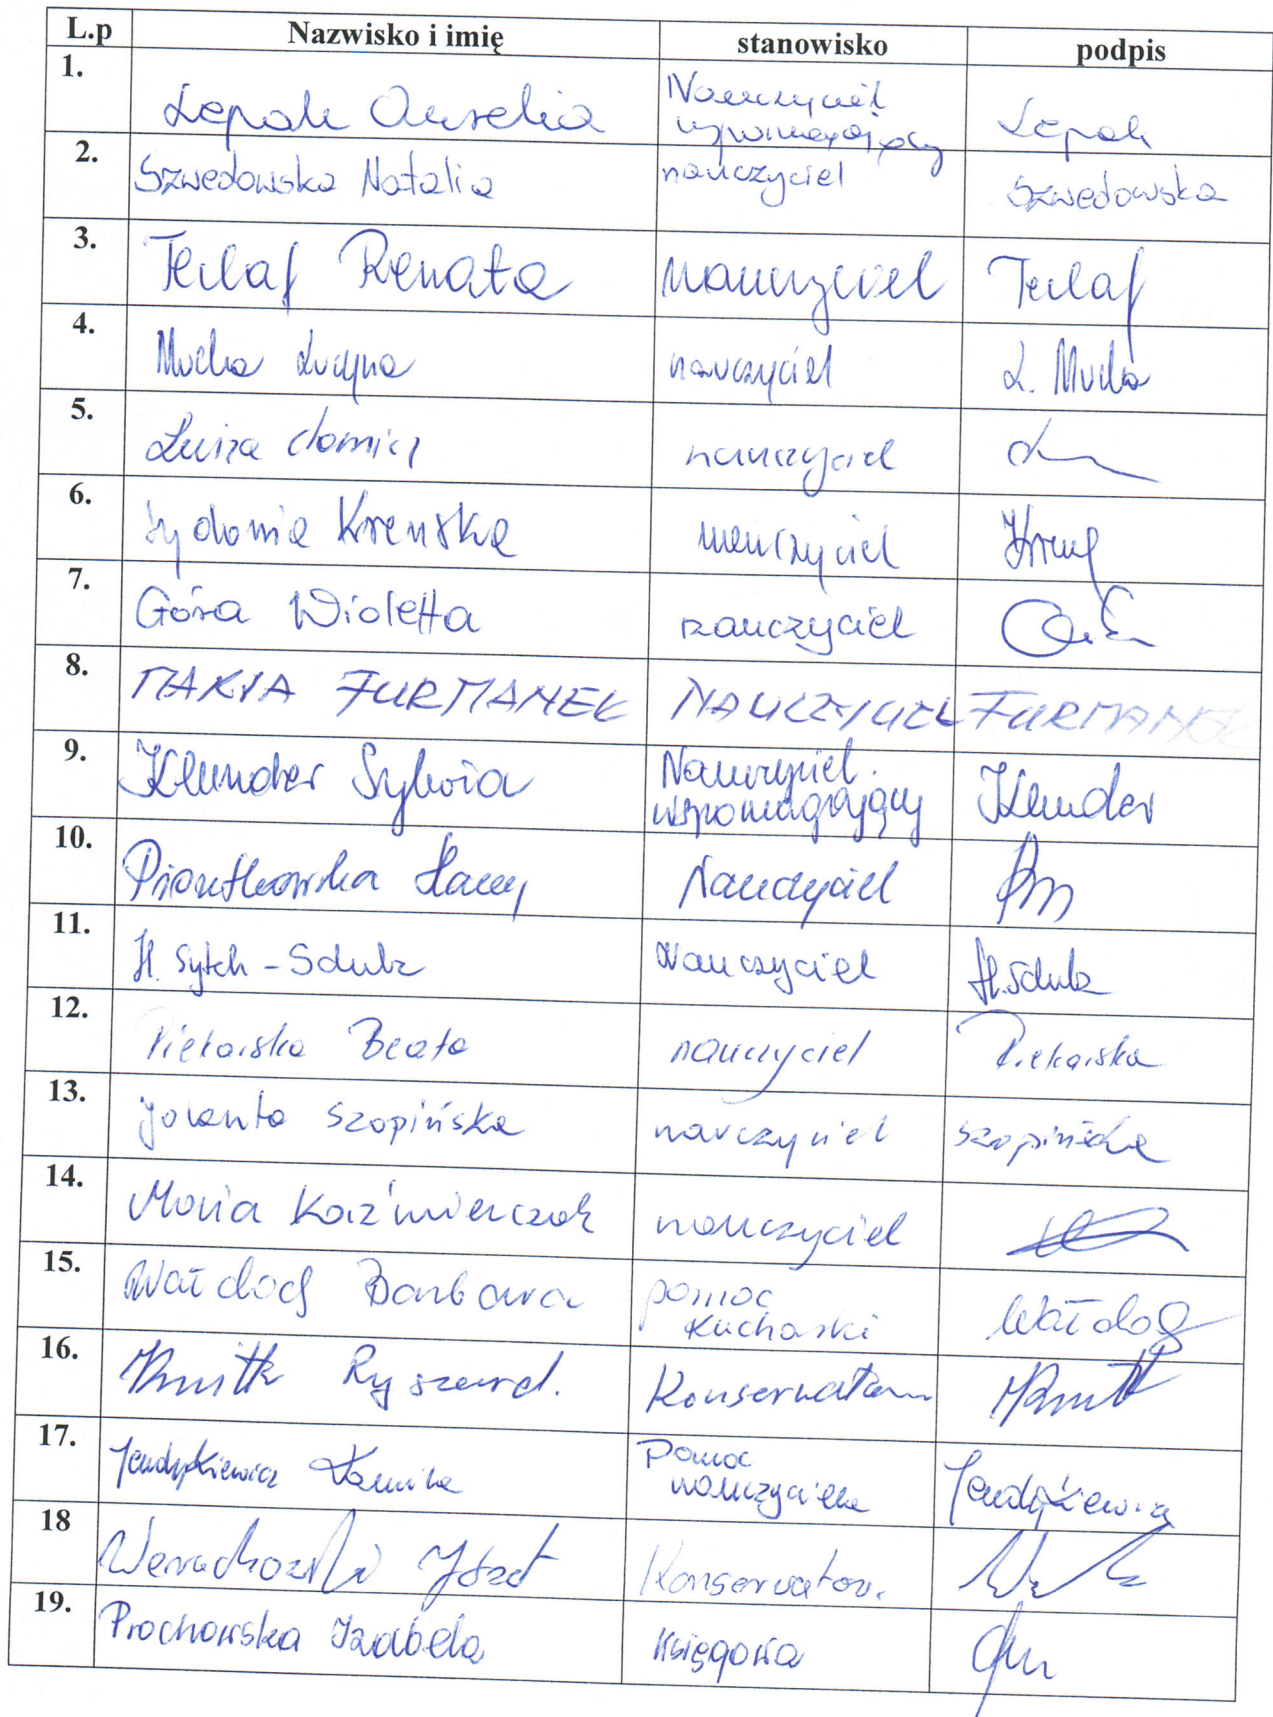 L.p Nazwisko i imię stanowisko podpis
1. Lepak Aurelia Nauczyciel wspomagający Lepak
2. Szwedowska Natalia nauczyciel Szwedowska
3. Teclaf Renata nauczyciel Teclaf
4. Mucha Lucyna nauczyciel L. Mucha
5. Luiza nauczyciel
6. Sydonia Krenska nauczyciel
7. Góra Wioletta nauczyciel
8. MARIA FURMANEK NAUCZYCIEL FURMANEK
9. Klunder Sylwia Nauczyciel wspomagający Klunder
10. Piontkowska nauczyciel
11. H. Sytek - Schulz Nauczyciel H. Schulz
12. Piekarska Beata nauczyciel Piekarska
13. Jolanta Szopińska nauczyciel Szopińska
14. Maria Kaźmierczak nauczyciel
15. Wałdoch Barbara pomoc kucharki Wałdoch
16. Ryszard. Konserwator
17. Kamila Pomoc nauczyciela
18 Józef Konserwator.
19. Prochowska Izabela księgowa